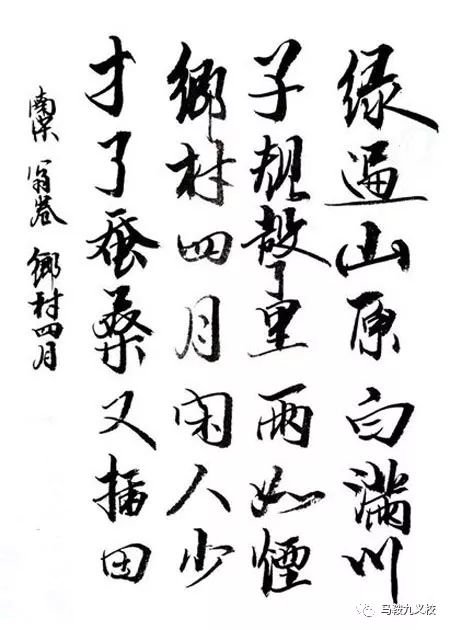 绿遍山原白滿川
子規聲里雨如煙
鄉村四月闲人少
才了蚕桑又插田
南宋 翁卷 鄉村四月
马鞍九义校